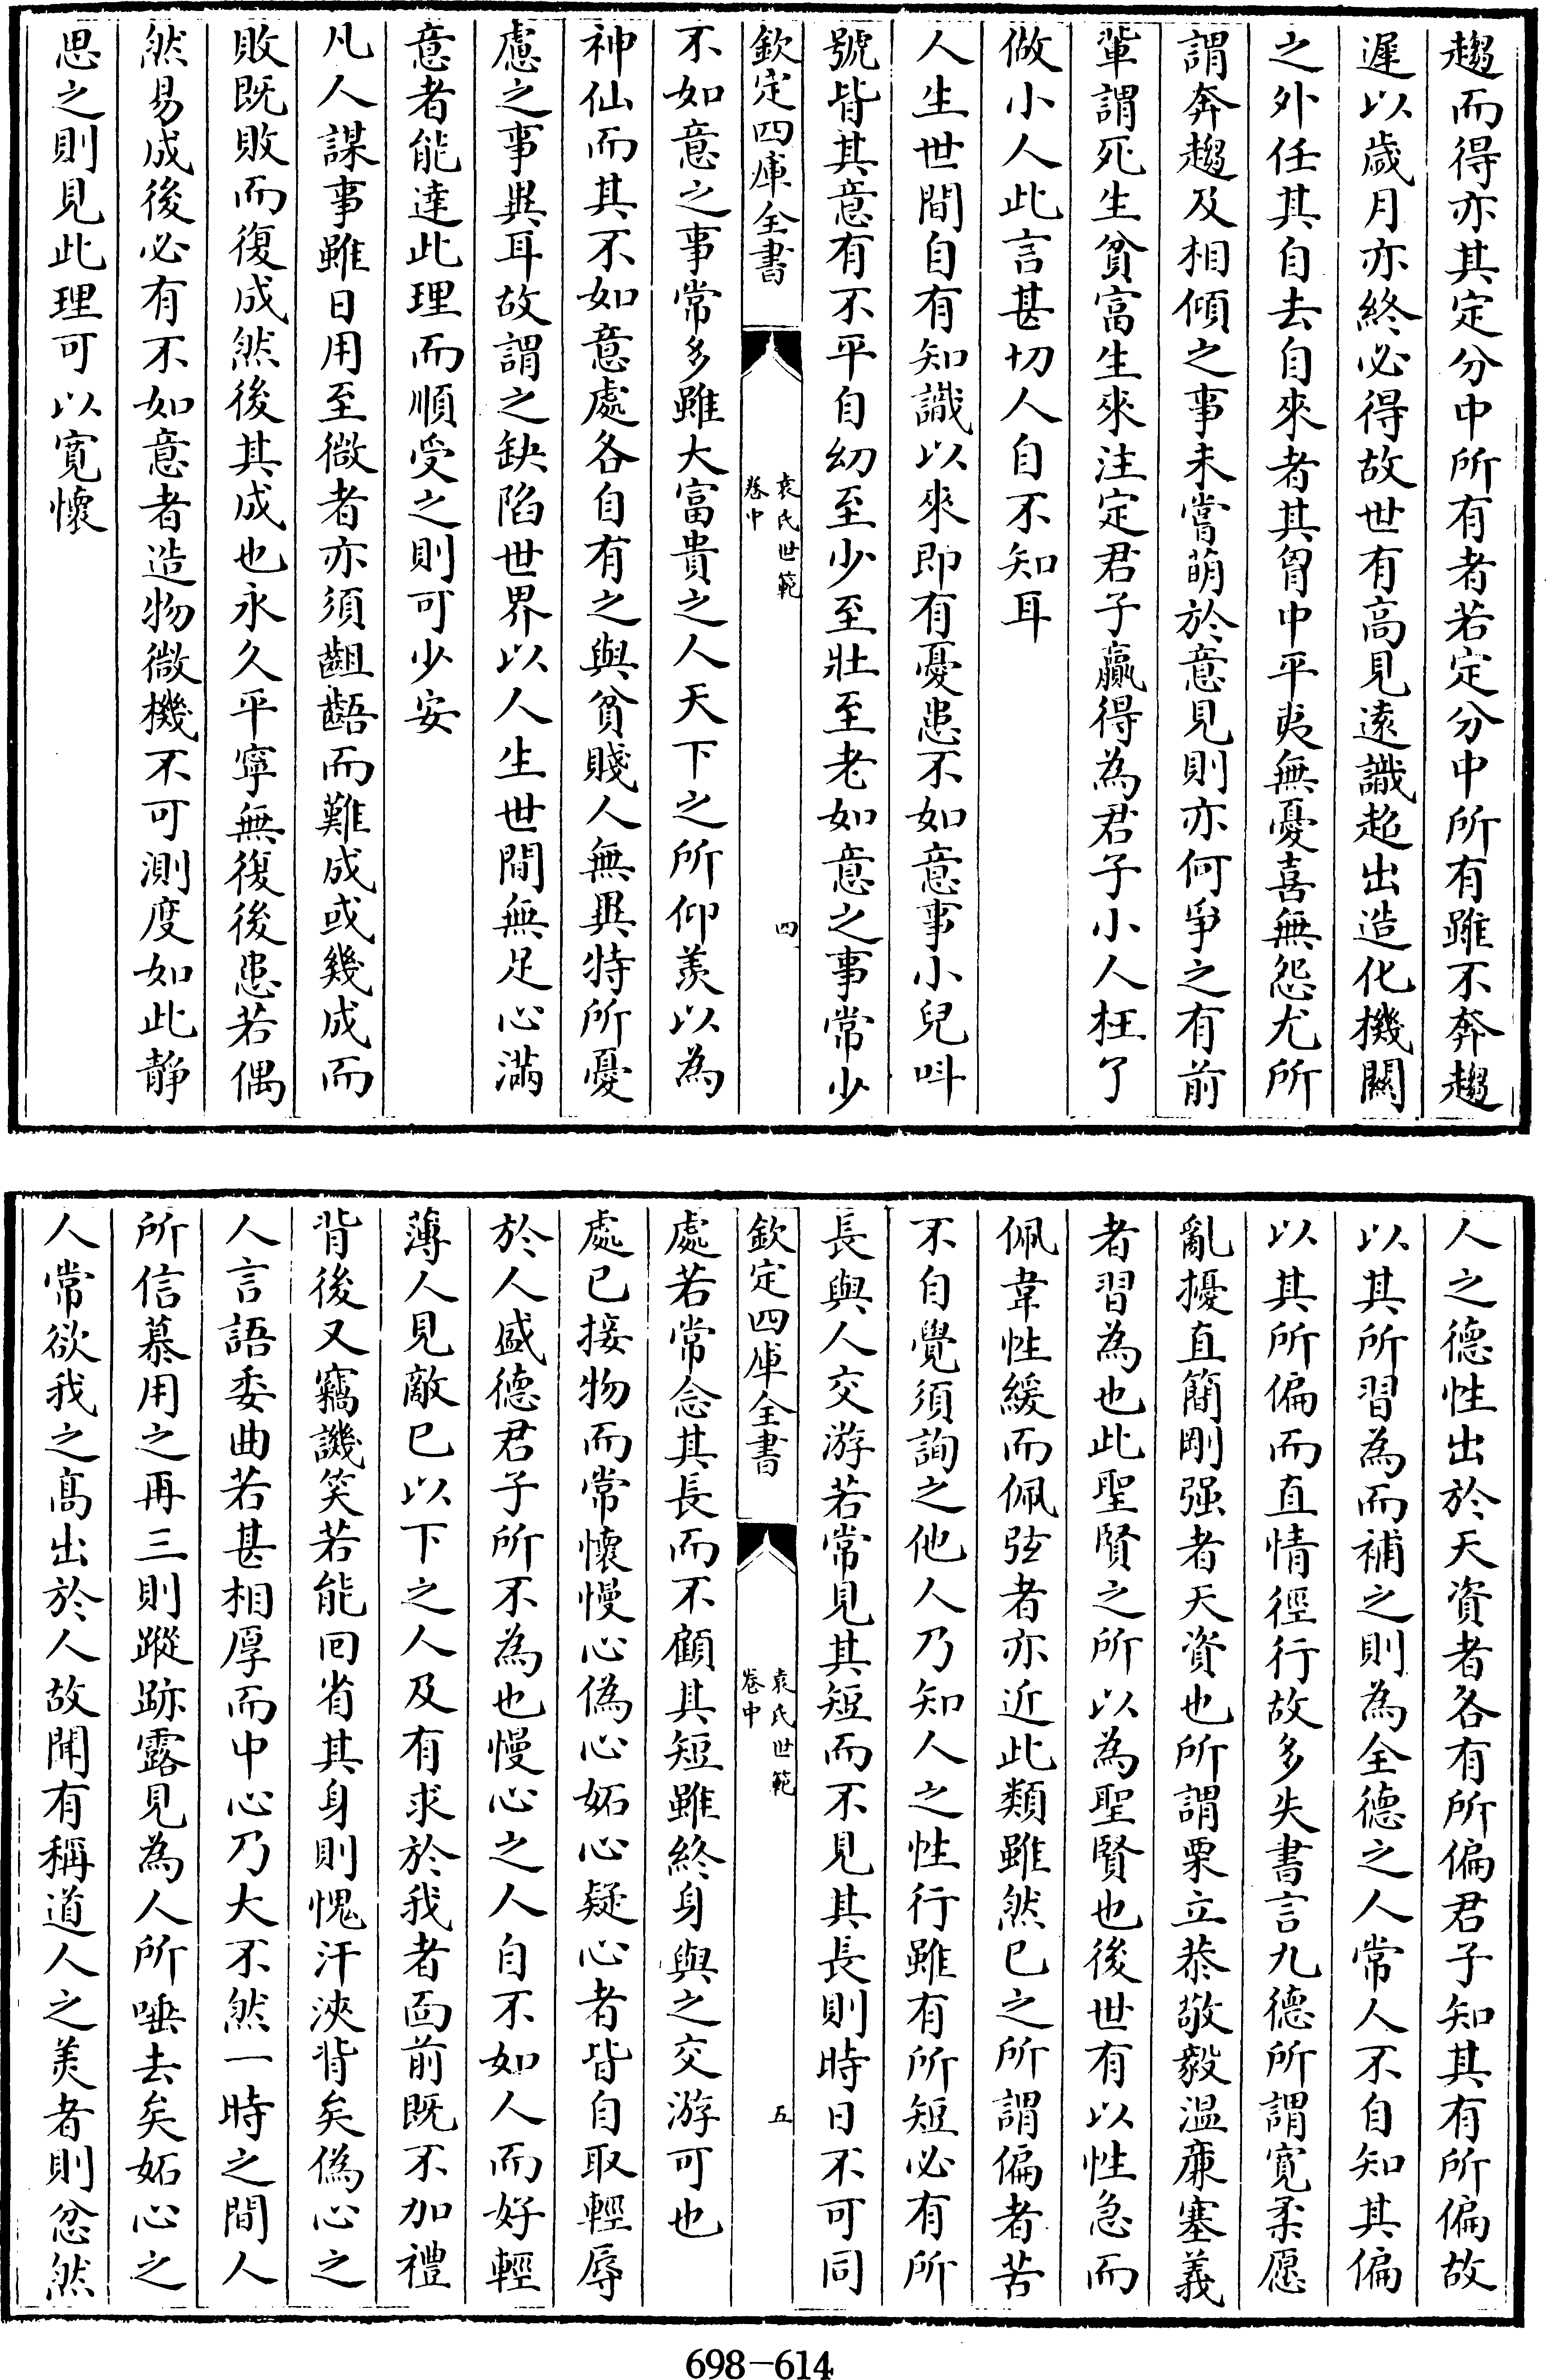 趨而得亦其定分中所有者若定分中所有雖不奔趨
遲以歲月亦終必得故世有高見遠識超出造化機關
之外任其自去自來者其胷中平夷無憂喜無怨尤所
謂奔趨及相傾之事未嘗萌於意見則亦何爭之有前
輩謂死生貧富生來注定君子贏得為君子小人枉了
做小人此言甚切人自不知耳
人生世間自有知識以來即有憂患不如意事小兒呌
號皆其意有不平自幼至少至壯至老如意之事常少
欽定四庫全書
袁氏世範
卷中
四
不如意之事常多雖大富貴之人天下之所仰羨以為
神仙而其不如意處各自有之與貧賤人無異特所憂
慮之事異耳故謂之缺陷世界以人生世間無足心滿
意者能達此理而順受之則可少安
凡人謀事雖日用至微者亦須齟齬而難成或幾成而
敗既敗而復成然後其成也永久平寧無復後患若偶
然易成後必有不如意者造物微機不可測度如此靜
思之則見此理可以寬懷
人之德性出於天資者各有所偏君子知其有所偏故
以其所習為而補之則為全德之人常人不自知其偏
以其所偏而直情徑行故多失書言九德所謂寬柔愿
亂擾直簡剛强者天資也所謂栗立恭敬毅溫廉塞義
者習為也此聖賢之所以為聖賢也後世有以性急而
佩韋性緩而佩弦者亦近此類雖然已之所謂偏者苦
不自覺須詢之他人乃知人之性行雖有所短必有所
長與人交游若常見其短而不見其長則時日不可同
欽定四庫全書
袁氏世範
卷中
五
處若常念其長而不顧其短雖終身與之交游可也
處已接物而常懷慢心偽心妬心疑心者皆自取輕辱
於人盛德君子所不為也慢心之人自不如人而好輕
薄人見敵已以下之人及有求於我者面前既不加禮
背後又竊譏笑若能回省其身則愧汗浹背矣偽心之
人言語委曲若甚相厚而中心乃大不然一時之間人
所信慕用之再三則蹤跡露見為人所唾去矣妬心之
人常欲我之高出於人故聞有稱道人之美者則忿然
698-614